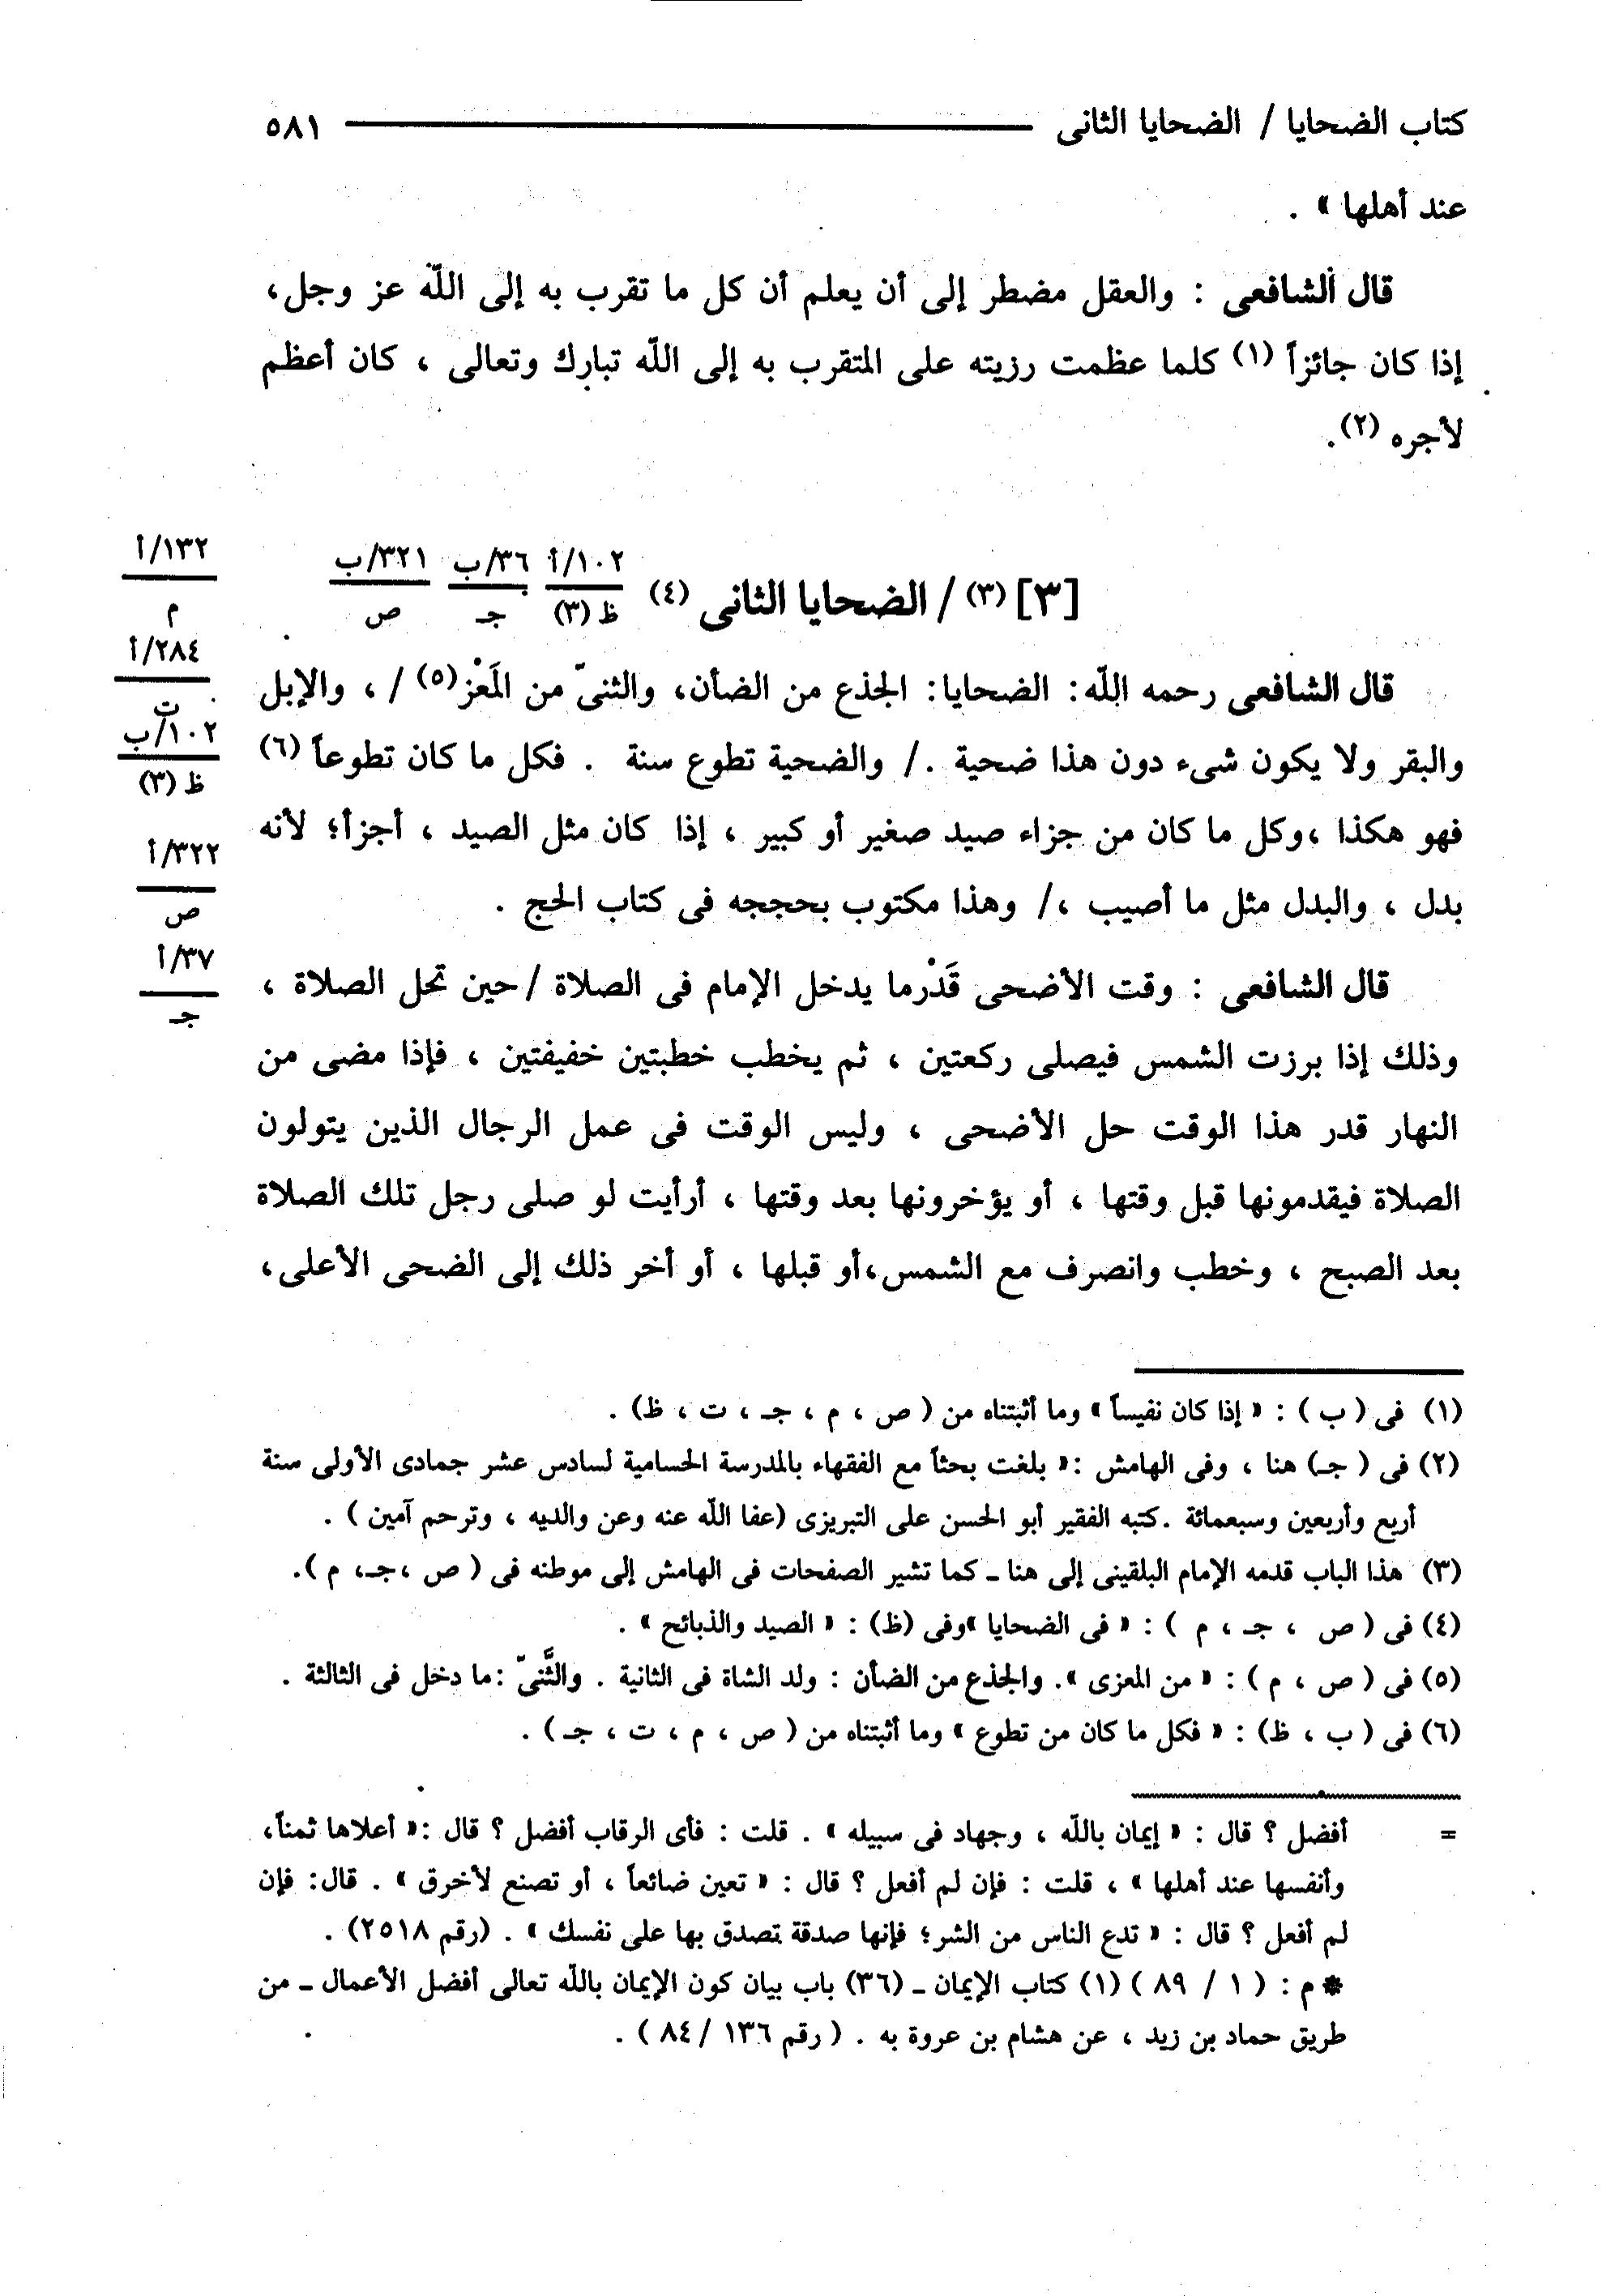 كتاب الضحايا / الضحايا الثانى ٥٨١
عند أهلها » .
قال الشافعى : والعقل مضطر إلى أن يعلم أن كل ما تقرب به إلى اللّه عز وجل،
إذا كان جائزاً (١) كلما عظمت رزيته على المتقرب به إلى اللّه تبارك وتعالى ، كان أعظم
لأجره (٢).
[٣] (٣) / الضحايا الثانى (٤) ١٠٢/أ ظ (٣) ٣٦/ب جـ ٣٢١/ب ص
١٣٢/أ
م
٢٨٤/أ
ت
قال الشافعى رحمه اللّه: الضحايا: الجذع من الضأن، والثنىّ من المَعْز(٥) / ، والإبل
والبقر ولا يكون شىء دون هذا ضحية ./ والضحية تطوع سنة . فكل ما كان تطوعاً (٦)
١٠٢/ب
ظ (٣)
فهو هكذا ،وكل ما كان من جزاء صيد صغير أو كبير ، إذا كان مثل الصيد ، أجزأ؛ لأنه
بدل ، والبدل مثل ما أصيب ،/ وهذا مكتوب بحججه فى كتاب الحج .
٣٢٢/أ
ص
قال الشافعى : وقت الأضحى قَدْرما يدخل الإمام فى الصلاة /حين تحل الصلاة ،
٣٧/أ
جـ
وذلك إذا برزت الشمس فيصلى ركعتين ، ثم يخطب خطبتين خفيفتين ، فإذا مضى من
النهار قدر هذا الوقت حل الأضحى ، وليس الوقت فى عمل الرجال الذين يتولون
الصلاة فيقدمونها قبل وقتها ، أو يؤخرونها بعد وقتها ، أرأيت لو صلى رجل تلك الصلاة
بعد الصبح ، وخطب وانصرف مع الشمس،أو قبلها ، أو أخر ذلك إلى الضحى الأعلى،
(١) فى ( ب ) : « إذا كان نفيساً » وما أثبتناه من ( ص ، م ، جـ ، ت ، ظ) .
(٢) فى ( جـ) هنا ، وفى الهامش :« بلغت بحثاً مع الفقهاء بالمدرسة الحسامية لسادس عشر جمادى الأولى سنة
أربع وأربعين وسبعمائة .كتبه الفقير أبو الحسن على التبريزى (عفا اللّه عنه وعن والديه ، وترحم آمين ) .
(٣) هذا الباب قدمه الإمام البلقينى إلى هنا ـ كما تشير الصفحات فى الهامش إلى موطنه فى ( ص ،جـ، م ).
(٤) فى ( ص ، جـ ، م ) : « فى الضحايا »وفى (ظ) : « الصيد والذبائح » .
(٥) فى ( ص ، م ) : « من المعزى ». والجذع من الضأن : ولد الشاة فى الثانية . والثَّنىّ :ما دخل فى الثالثة .
(٦) فى ( ب ، ظ) : « فكل ما كان من تطوع » وما أثبتناه من ( ص ، م ، ت ، جـ ) .
= أفضل ؟ قال : « إيمان باللّه ، وجهاد فى سبيله » . قلت : فأى الرقاب أفضل ؟ قال :« أعلاها ثمناً،
وأنفسها عند أهلها » ، قلت : فإن لم أفعل ؟ قال : « تعين ضائعاً ، أو تصنع لأخرق » . قال: فإن
لم أفعل ؟ قال : « تدع الناس من الشر؛ فإنها صدقة تصدق بها على نفسك » . (رقم ٢٥١٨) .
* م : ( ١ / ٨٩ ) (١) كتاب الإيمان ـ (٣٦) باب بيان كون الإيمان باللّه تعالى أفضل الأعمال ـ من
طريق حماد بن زيد ، عن هشام بن عروة به . ( رقم ١٣٦ / ٨٤ ) .